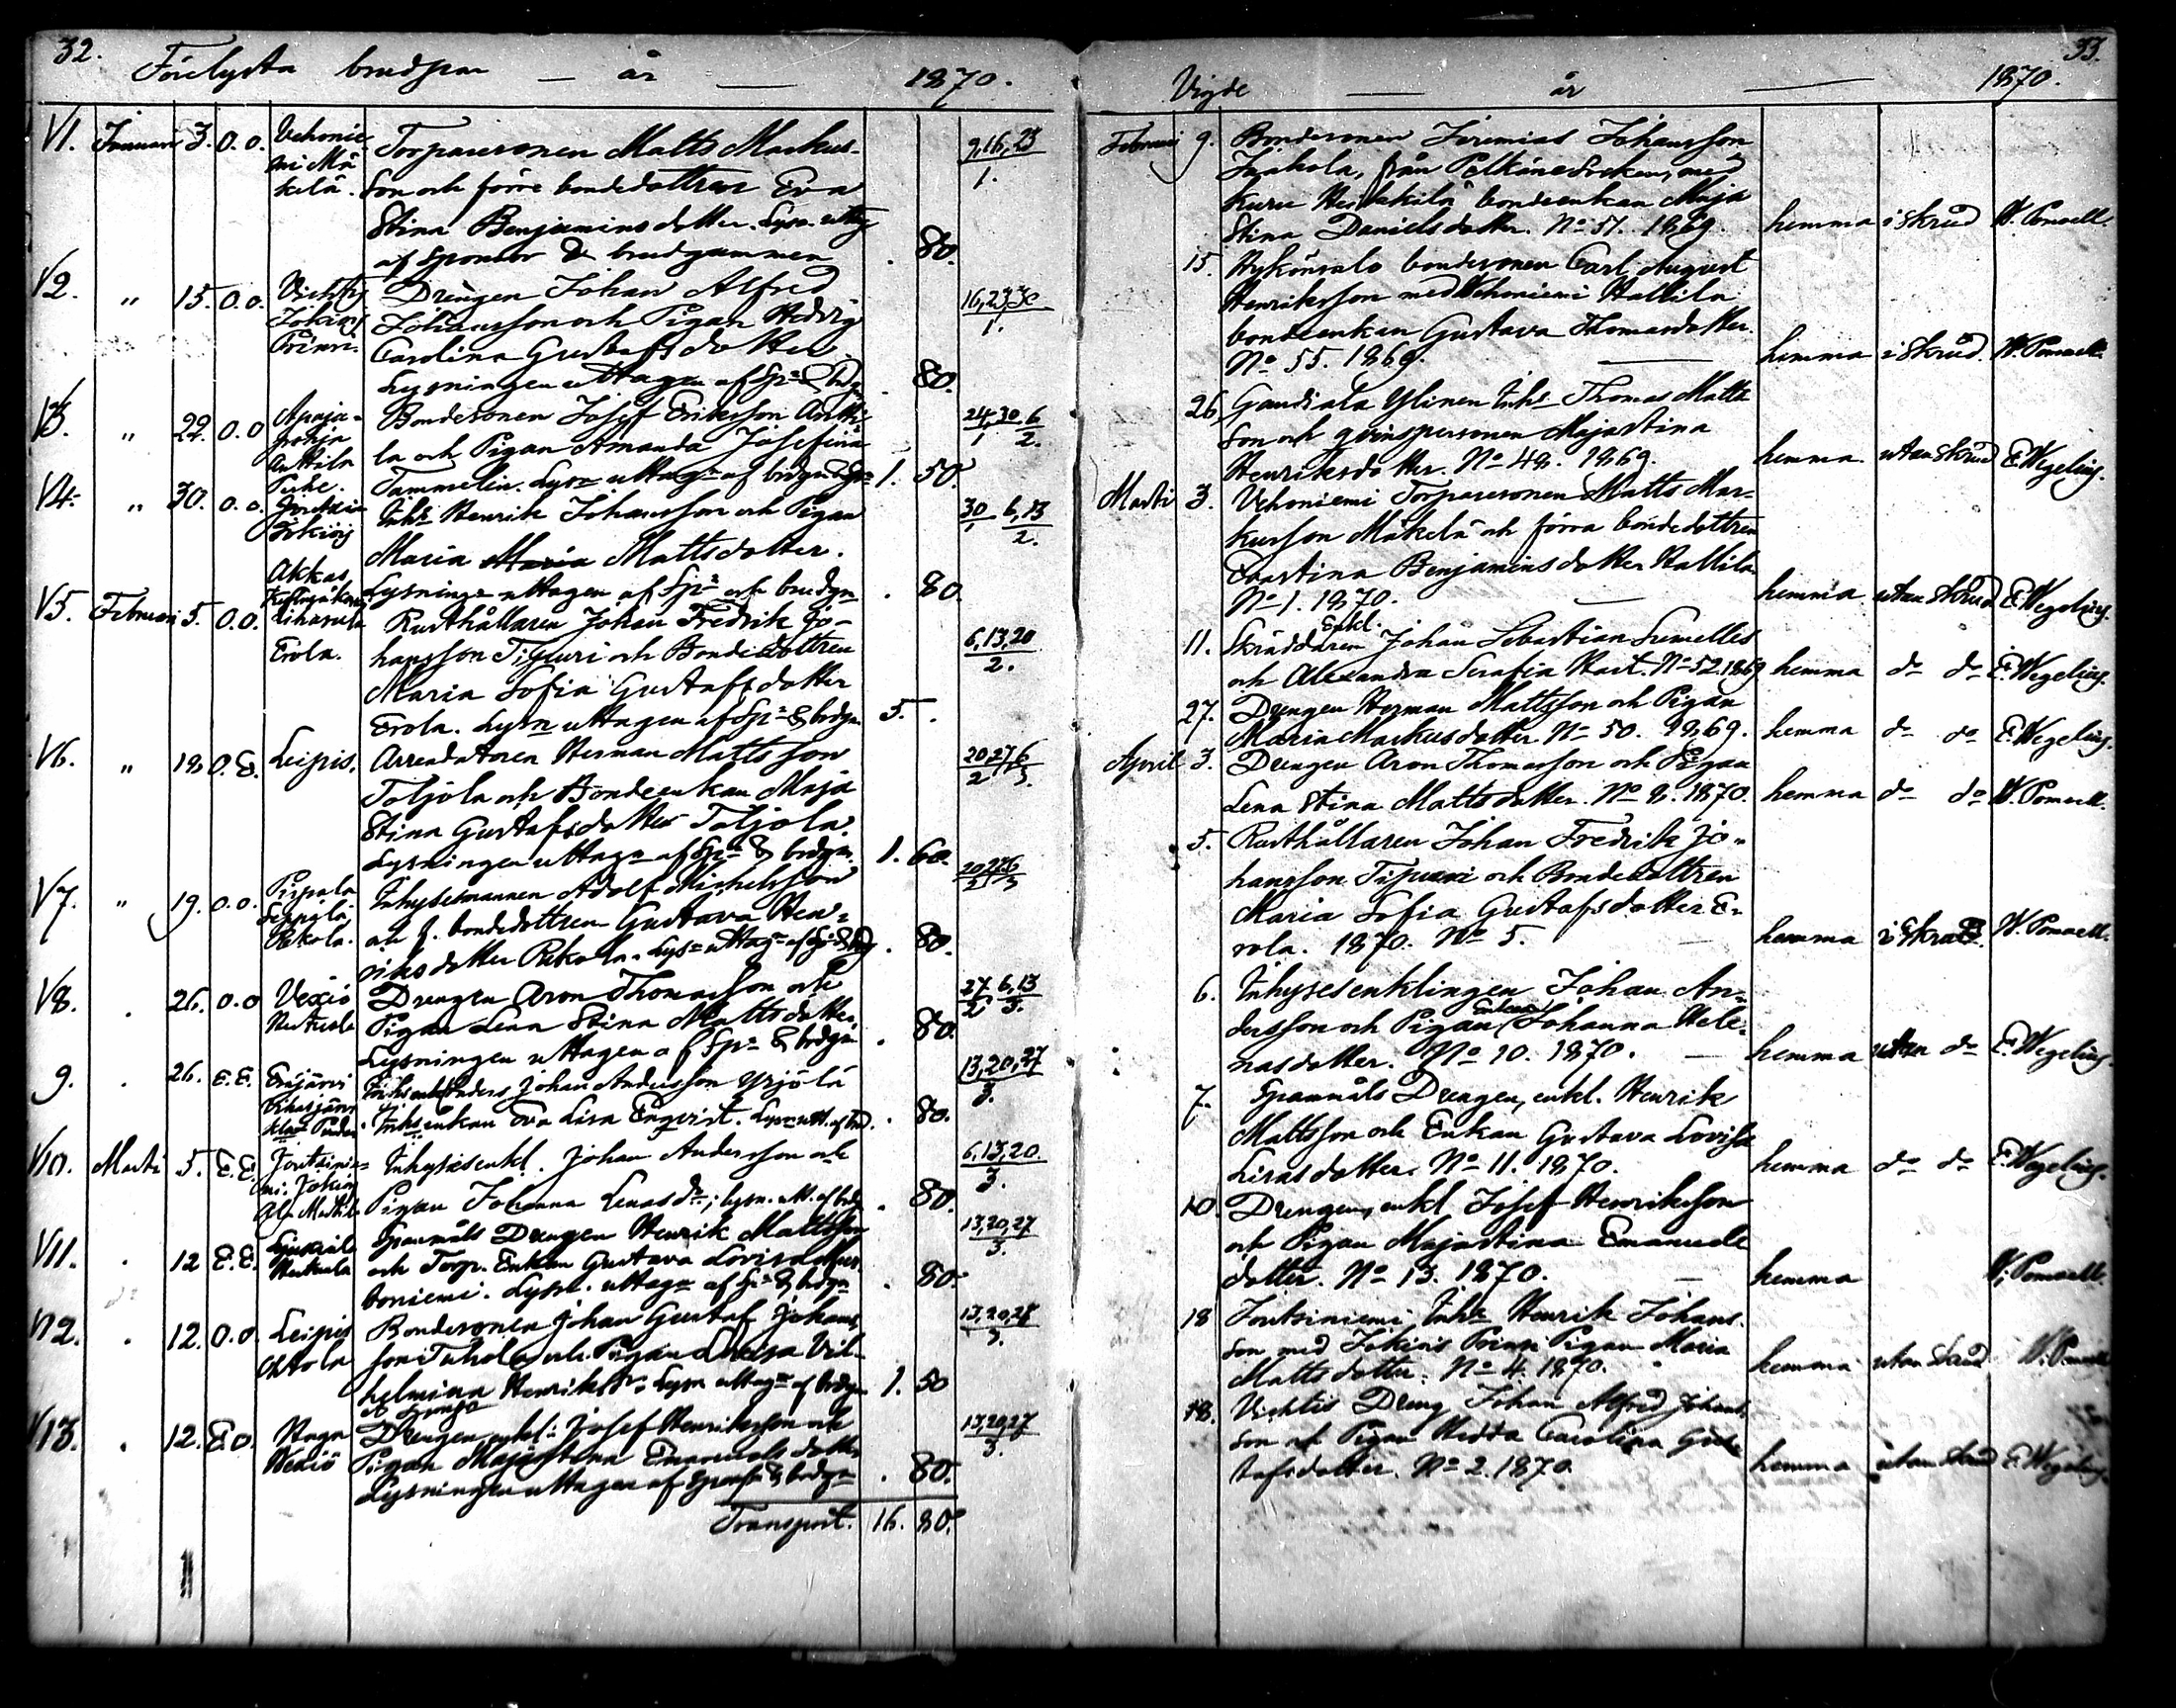 32.
Förelysta brudpar — år — 1870.
V1. Januari 3. O. O. Vehonie-
mi Mä
kelä.
Torparesonen Matts Markus-
son och förre bondedottren Eva
Stina Benjaminsdotter. Lysn. uttag
af Sponsor & brudgummen . 80.
9,16,23
1.
V2. " 15. O. O.
Jokioij
Prinsi.
Drengen Johan Alfred
Johansson och Pigan Hedvig
Carolina Gustafsdotter
Lysningen uttagen af Sp: & brdg. . 80.
16,23,30
1.
V3. " 22. O. O
Anttila
Bondesonen Josef Eriksson Antti-
la och Pigan Amanda Josefina
Tammelin. Lysn uttagn af brdgn 1. 50.
24,30. 6
1 2.
V4. " 30. O. O.
Jokioij
Inhs Henrik Johansson och Pigan
Maria Maria Mattsdotter.
Lysningn uttagen af Spn och brudgn . 80.
30 6,13
1 2.
V5. Februari 5. O. O. Akkas
Liharula
Erola.
Rusthållaren Johan Fredrik Jo-
hansson Tipuri och Bondedottren
Maria Sofia Gustafsdotter
Erola. Lysn uttagen af Spn & brdgn. 5. .
6,13,20
2.
V6. " 18 O. E. Leipis.
Arrendatoren Herman Mattsson
Toljola och Bondeenkan Maja
Stina Gustafsdotter Toljola.
Lysningen uttagn af Spn & brdgn. 1. 60.
20,27,6
2 3.
V7. " 19. O. O.
Rekola.
Inhysesmannen Adolf Michelsson
och f. bondedottren Gustava Hen-
riksdotter Rekola. Lysn uttagn af Sp & brdg . 80.
20,27,6
2 3
V8. . 26. O. O Vexiö
Drengen Aron Thomasson och
Pigan Lena Stina Mattsdotter
Lysningen uttagen af Spn & brdgn . 80.
27. 6,13
2 3.
9. . 26. E. E. Erijärvi
Anders Johan Andersson Yrjölä
Inhs enkan Eva Lisa Enqvist. Lysn utt. af brd. . 80.
13,20,27
3.
V10. Marti 5. E. E. Jontsinie-
mi. Jokioij
Inhyses enkl. Johan Andersson och
Pigan Johanna Lenas dr; lysn. utt. af brdg . 80.
6,13,20.
3.
V11. . 12 E. E.
Spanmåls Drengen Henrik Mattsson
och Torp. Enkan Gustava Lovisa
boniemi. Lysn. uttagn af Sp: & brdgn . 80.
13,20,27
3.
V12. . 12. O. O. Leipis
Ohtola
Bondesonen Johan Gustaf Johans
son Tuhola och Pigan Lovisa Vil-
helmina Henriksdr. Lysn uttagn af brdgn 1. 50
13,20,28
3.
V13. . 12. E. O. Haga
Wexiö
Drengen, enkl: Josef Henriksson och
Pigan Majastina Emanuelsdotter
Lysningen uttagen af Spons & brdgn . 80.
13,20,27
3.
Transport. 16. 80.
33.
Vigde — år — 1870.
Februari 9. Bondesonen Jeremias Johansson
Jaakola, från Pelkäne Socken, med
Kuru Heikkilä bondeenkan Maja
Stina Danielsdotter. No 51. 1869. hemma i skrud W. Pomoell.
15. Hykönsalo bondesonen Carl August
Henriksson med Vehoniemi Hallila
bondeenkan Gustava Thomasdotter.
No 55. 1869. — hemma i skrud. W. Pomoell
26. Gaudiala Ylinen Inhs Thomas Matts
son och qvinspersonen Majastina
Henriksdotter. No 48. 1869. hemma utan skrud E. Wegelius.
Marti 3. Vehoniemi Torparesonen Matts Mar-
kusson Mäkelä och förra bondedottren
Evastina Benjaminsdotter Hallila
No 1. 1870. — hemma utan skrud E. Wegelius.
11. Skräddaren Enkl. Johan Sebastian
och Alexandra Serafia No 52. 1869 hemma do do E. Wegelius.
27. Drengen Herman Mattsson och Pigan
Maria Markusdotter. No 50. 1869. hemma do do E. Wegelius.
April 3. Drengen Aron Thomasson och Pigan
Lena Stina Mattsdotter. No 8. 1870. hemma do do W. Pomoell.
5. Rusthållaren Johan Fredrik Jo-
hansson Tipuri och Bondedottren
Maria Sofia Gustafsdotter E-
rola. 1870. No 5. — hemma i skrud. W. Pomoell.
6. Inhysesenklingen Johan An-
dersson och Pigan (Enkan) Johanna Hele-
nasdotter. No 10. 1870. — hemma utan do E. Wegelius.
7. Spanmåls Drengen, enkl. Henrik
Mattsson och Enkan Gustava Lovisa
Lisasdotter. No 11. 1870. hemma do do E. Wegelius.
10. Drengen, enkl Josef Henriksson
och Pigan Majastina Emanuels
dotter. No 13. 1870. — hemma W. Pomoell.
18 Jontsiniemi, Inhs Henrik Johans
son med Jokiois Prinsi Pigan Maria
Mattsdotter. No 4. 1870. hemma utan skrud W. Pomoell
18. Vichtis Dreng Johan Alfred Johans
son och Pigan Hedda Carolina Gus-
tafsdotter. No 2. 1870. hemma utan skrud E. Wegelius.